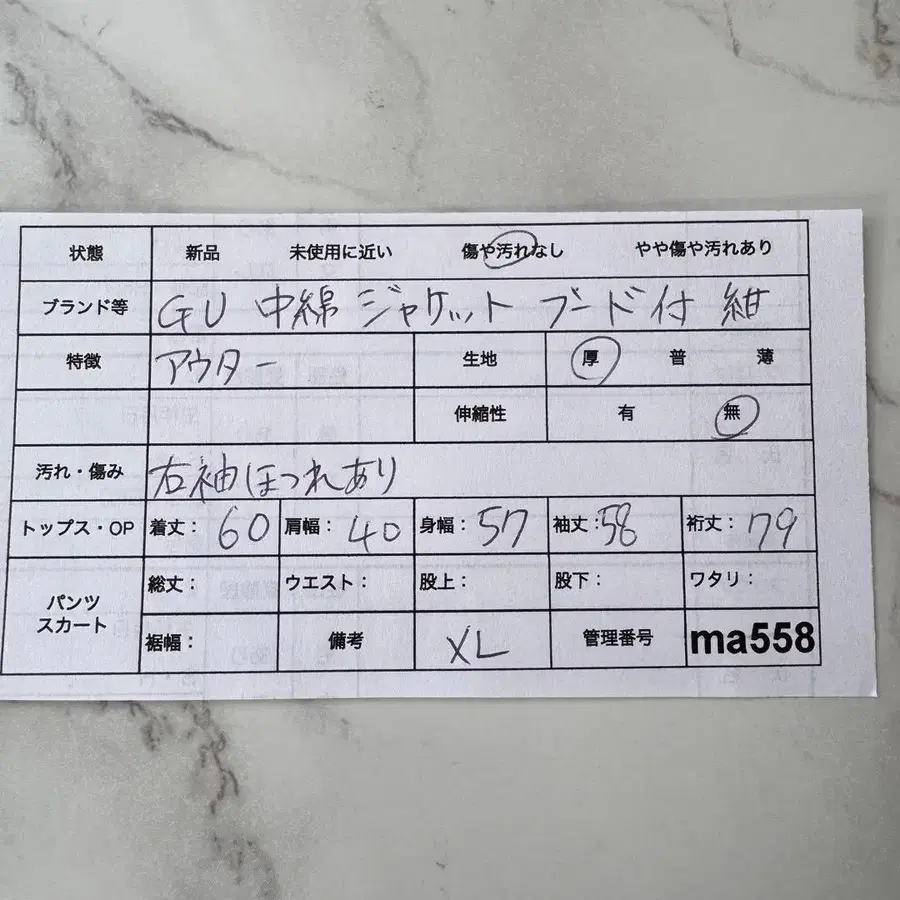 状態 新品 未使用に近い 傷や汚れなし やや傷や汚れあり
ブランド等 GU 中綿 ジャケット フード付 紺
特徴 アウター 生地 厚 普 薄
伸縮性 有 無
汚れ・傷み 右袖ほつれあり
トップス・OP 着丈: 60 肩幅: 40 身幅: 57 袖丈: 58 裄丈: 79
パンツ スカート 総丈: ウエスト: 股上: 股下: ワタリ:
裾幅: 備考 XL 管理番号 ma558